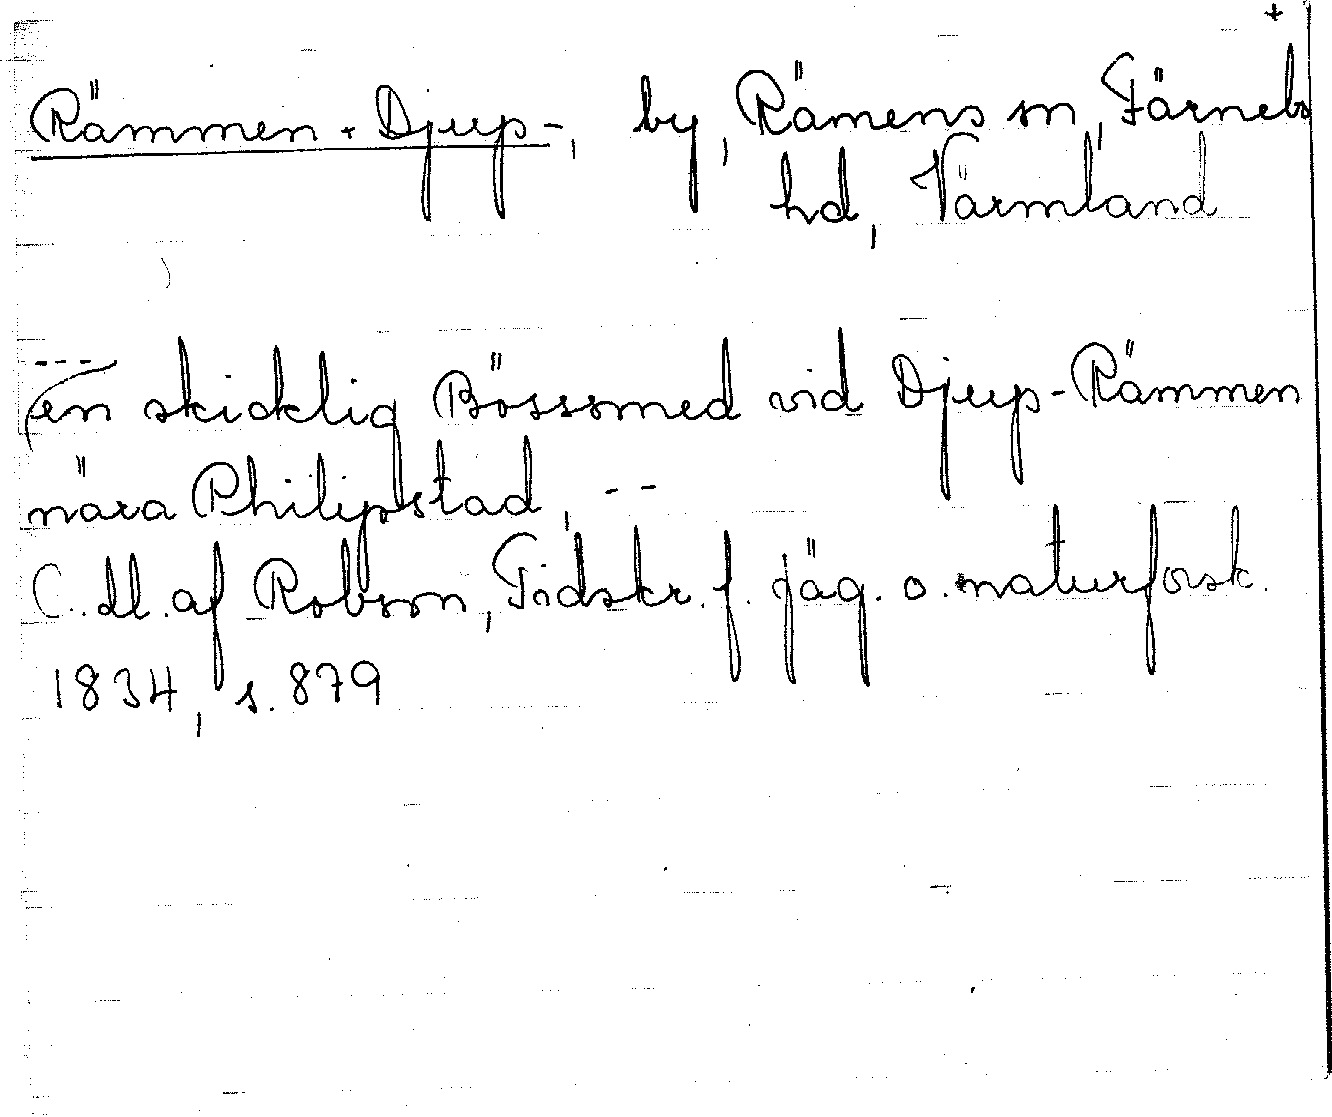 +
Rämmen + Djup-, by, Rämens sn, Färnebo
hd, Värmland
--- en skicklig Bössmed vid Djup-Rämmen
nära Philipstad, --
C. U. af Robson, Tidskr. f. jäg. o. naturforsk.
1834, s. 879